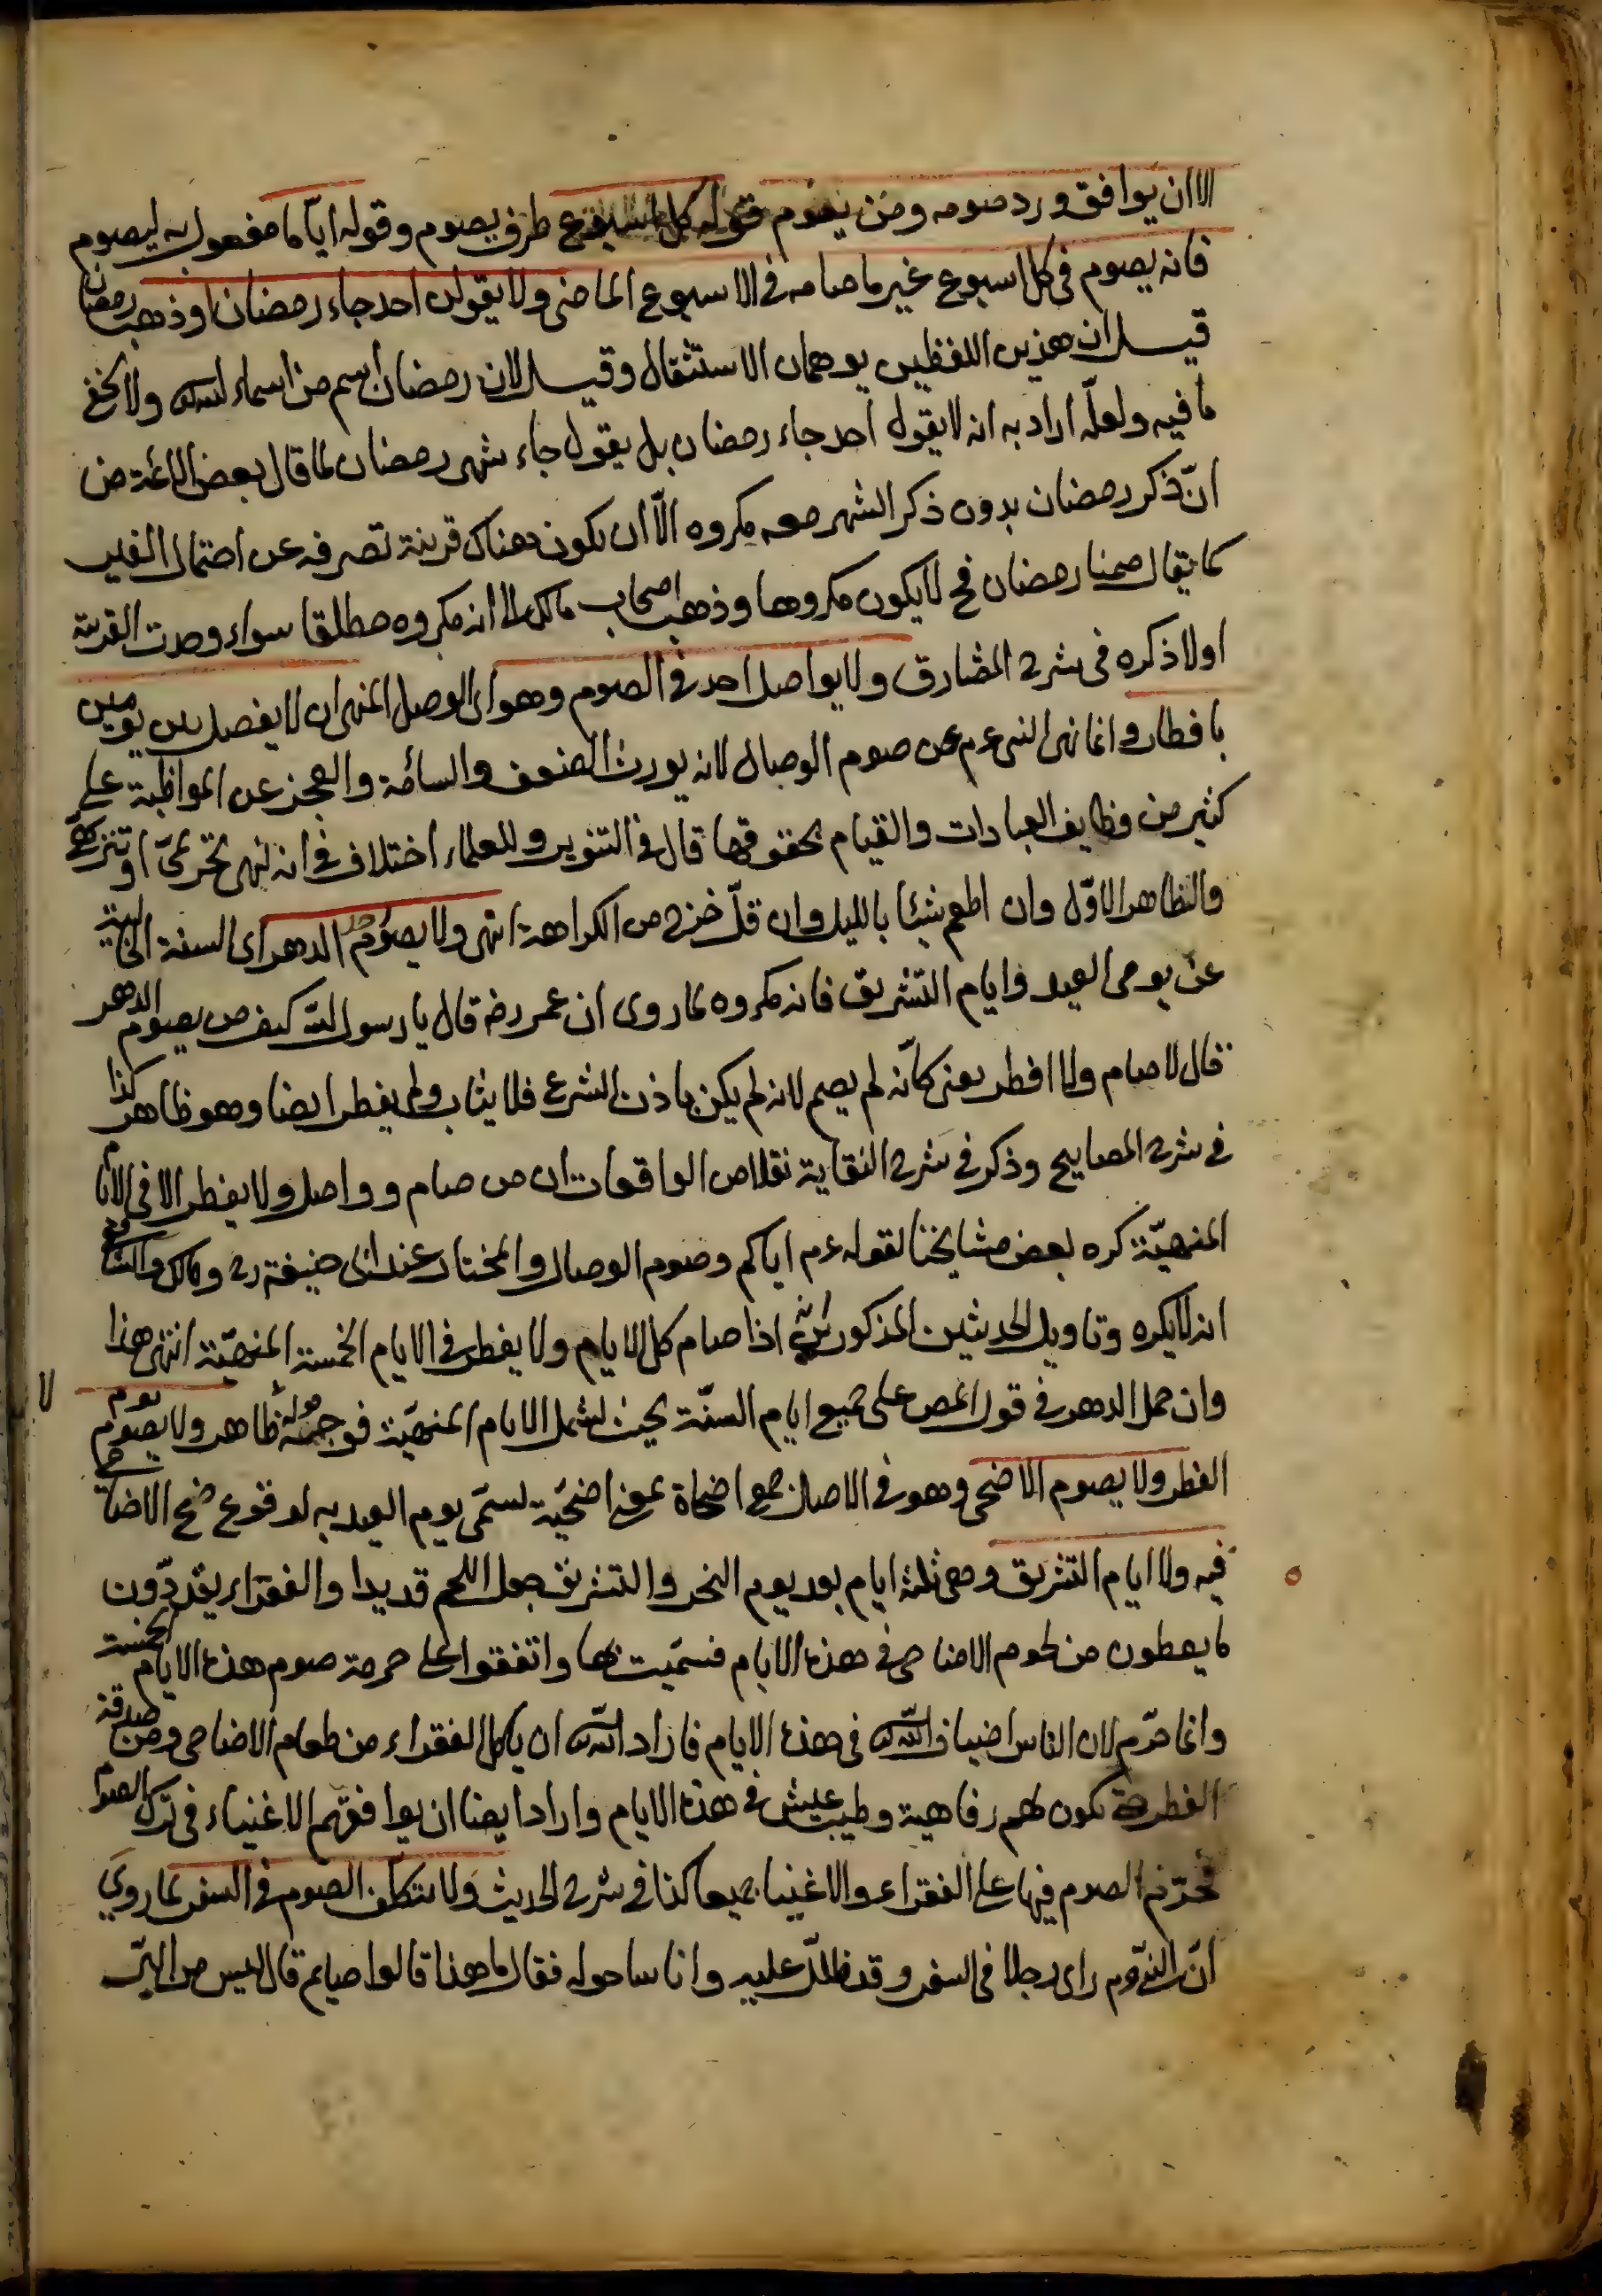 الا ان يوافق ورد صومه ومن يصوم قوله كل اسبوع ظرف يصوم وقوله اياما مفعول به ليصوم
فانه يصوم في كل اسبوع غير ما صامه في الاسبوع الماضى ولا يقولن احد جاء رمضان او ذهب رمضان
قيل ان هذين اللفظين يوهمان الاستثقال وقيل لان رمضان اسم من اسماء الله تع ولا يخفى
ما فيه ولعلّه اراد به انه لا يقول احد جاء رمضان بل يقول جاء شهر رمضان لما قال بعض الائمة من
انّ ذكر رمضان بدون ذكر الشهر معه مكروه الّا ان يكون هناك قرينة تصرفه عن احتمال الغير
كما يقال صمنا رمضان فح لا يكون مكروها وذهب اصحاب مالك الى انه مكروه مطلقا سواء وجدت القرينة
اولا ذكره فى شرح المشارق ولا يواصل احد فى الصوم وهو اى الوصل المنهى ان لا يفصل بين يومين
بافطار وانما نهى النبى عم عن صوم الوصال لانه يورث الضعف والسأمة والعجز عن المواظبة على
كثير من وظايف العبادات والقيام بحقوقها قال فى التنوير وللعلماء اختلاف فى انه نهى تحريمىّ او تنزيهىّ
والظاهر الاوّل وان اطعم شيئا بالليل وان قلّ خرج من الكراهة انتهى ولا يصوم الدهر اى السنة الخالية
عن يومى العيد وايام التشريق فانه مكروه لما روى ان عمر رضه قال يا رسول الله كيف من يصوم الدهر
قال لا صام ولا افطر يعنى كانّه لم يصم لانه لم يكن باذن الشرع فلا يثاب ولم يفطر ايضا وهو ظاهر كذا
فى شرح المصابيح وذكر فى شرح النقاية نقلا من الواقعات ان من صام وواصل ولا يفطر الا فى الايام
المنهيّة كره بعض مشايخنا لقوله عم اياكم وصوم الوصال والمختار عند ابى حنيفة رح ومالك والشافعى
انه لا يكره وتاويل الحديثين المذكورين اذا صام كل الايام ولا يفطر فى الايام الخمسة المنهيّة انتهى هذا
وان حمل الدهر فى قول المص على جميع ايام السنّة بحيث يشمل الايام المنهيّة فوجهه ظاهر ولا يصوم يوم
الفطر ولا يصوم الاضحى وهو فى الاصل جمع اضحاة بمعنى اضحيّة يسمّى يوم العيد به لوقوع ذبح الاضاحى
فيه ولا ايام التشريق وهى ثلثة ايام بعد يوم النحر والتشريق جعل اللحم قديدا والفقراء يقدّدون
ما يعطون من لحوم الاضاحى فى هذه الايام فسمّيت بها واتفقوا على حرمة صوم هذه الايام الخمسة
وانما حرّم لان الناس اضياف الله تع فى هذه الايام فاراد الله تع ان ياكل الفقراء من طعام الاضاحى ومن صدقة
الفطر يكون لهم رفاهية وطيب عيش فى هذه الايام واراد ايضا ان يوافقهم الاغنياء فى ترك الصوم
فحرّم الصوم فيها على الفقراء والاغنياء جميعا كذا فى شرح الحديث ولا يتكلّف الصوم فى السفر لما روى
انّ النبى عم راى رجلا فى السفر وقد ظلّل عليه واناسا حوله فقال ما هذا قالوا صايم قال ليس من البرّ